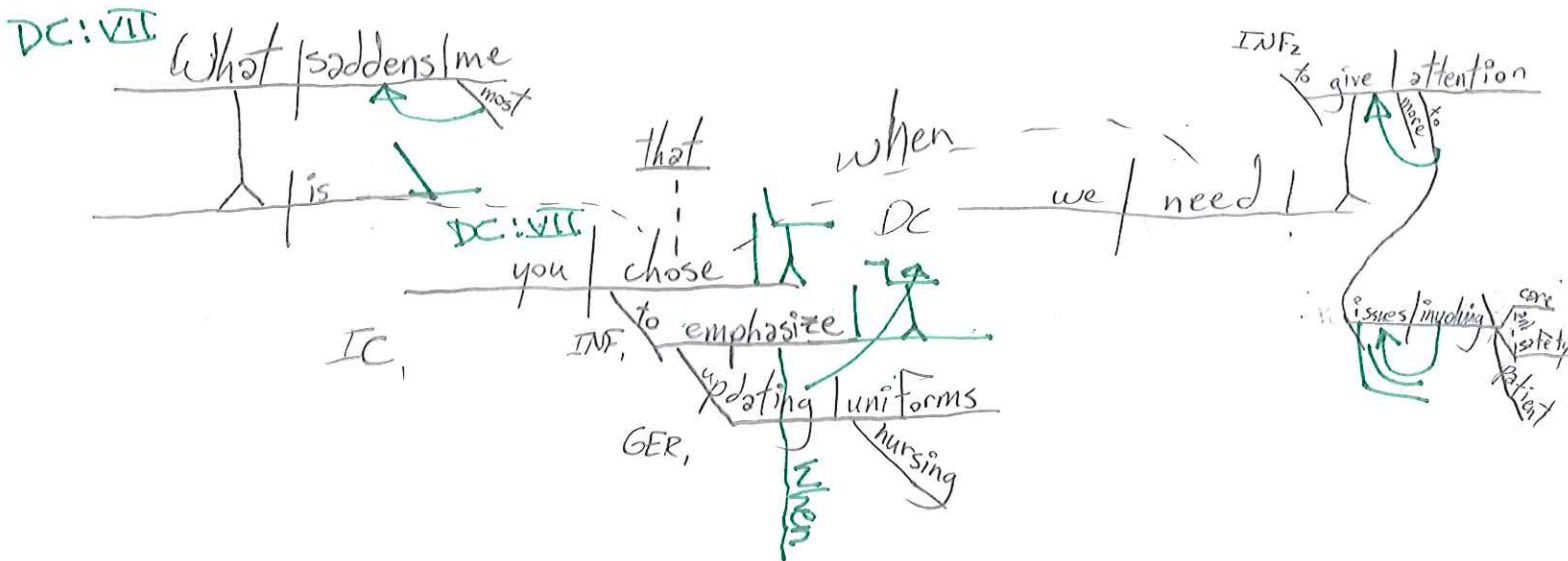 DC: VII
What saddens me
most
is
that
DC: VII
you chose
IC₁
INF₁
to emphasize
updating uniforms
GER₁
nursing
when
DC
we need
INF₂
to give attention
more
to
issues involving
care
safety
patient